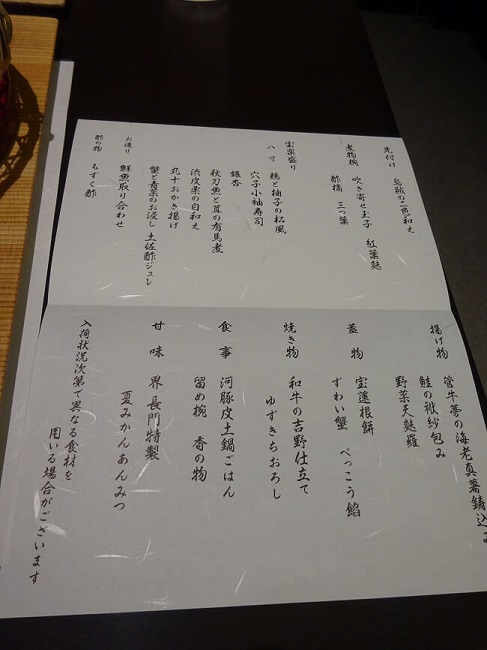 先付け 烏賊の二色和え
煮物椀 吹き寄せ玉子 紅葉麸
酢橘 三つ葉
宝楽盛り
八寸 鶏と柚子の松風
穴子小袖寿司
銀杏
秋刀魚と茸の有馬煮
渋皮栗の白和え
丸十おかき揚げ
蟹と青菜のお浸し 土佐酢ジュレ
お造り 鮮魚取り合わせ
酢の物 もずく酢
揚げ物 管牛蒡の海老真薯鋳込み
鮭の袱紗包み
野菜天麩羅
蓋物 宝蓮根餅
ずわい蟹 べっこう餡
焼き物 和牛の吉野仕立て
ゆずきちおろし
食事 河豚皮土鍋ごはん
留め椀 香の物
甘味 界 長門特製
夏みかんあんみつ
入荷状況次第で異なる食材を
用いる場合がございます